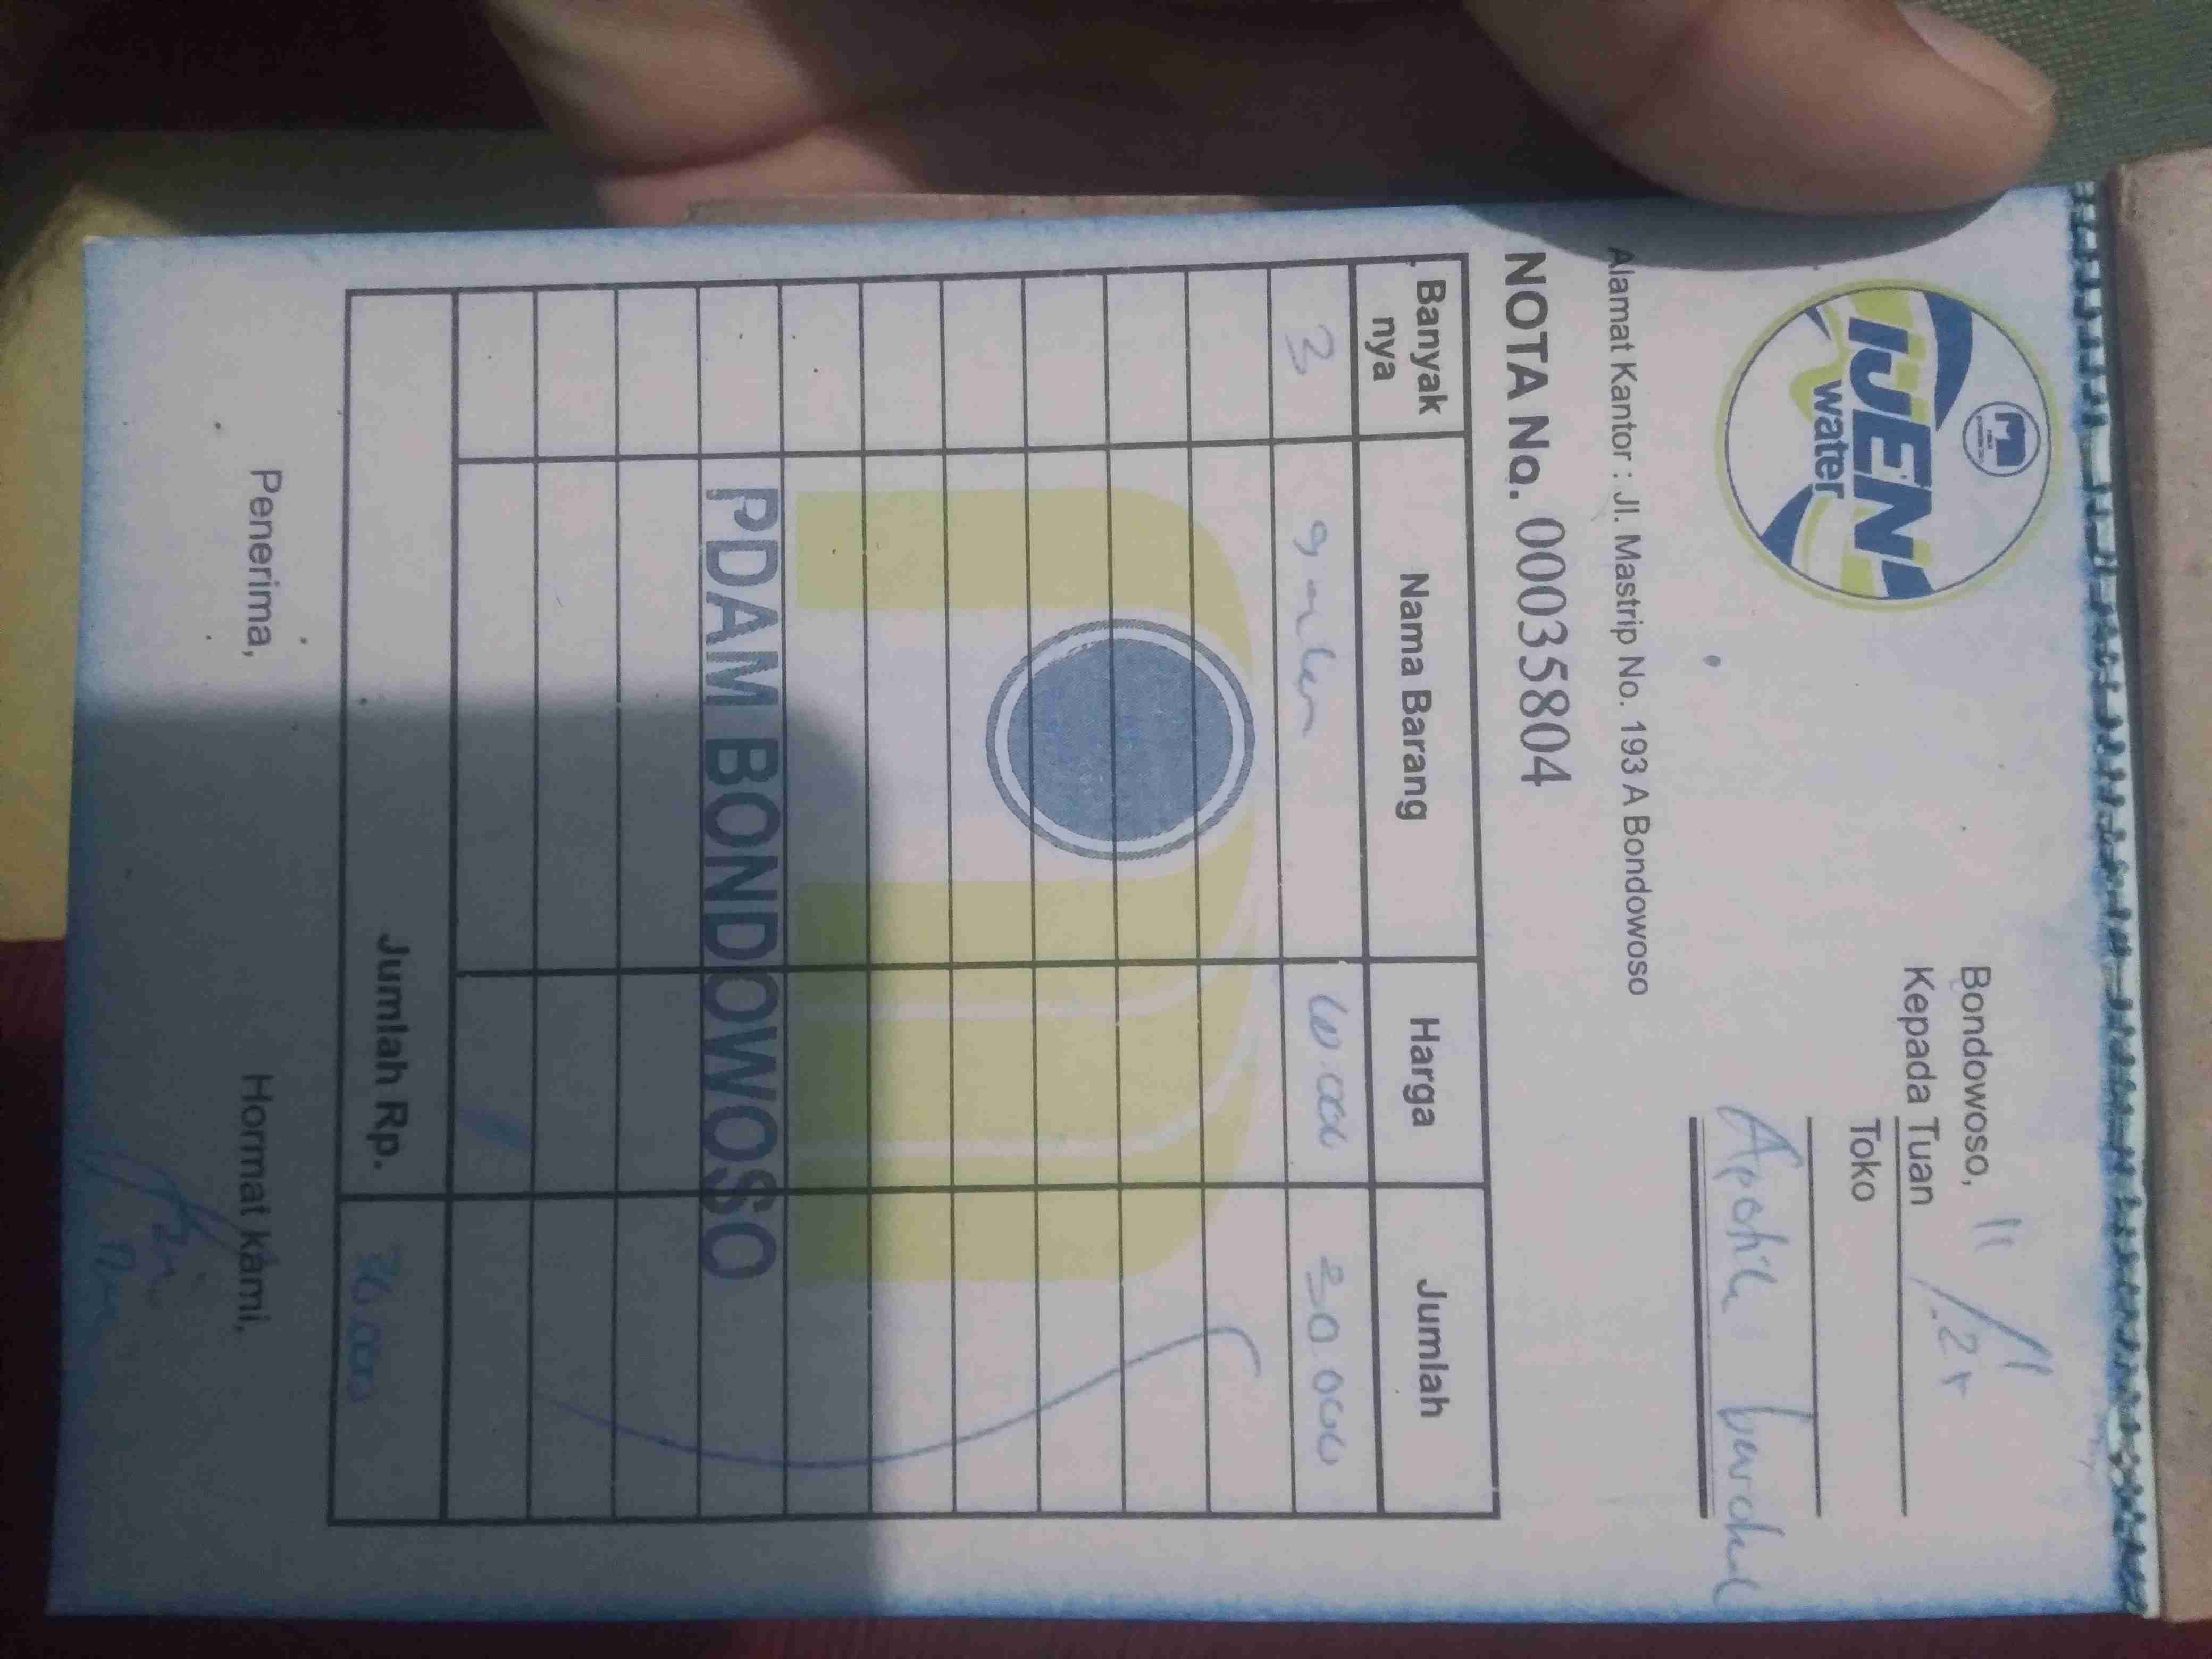 IJEN
water
Bondowoso, 11/11.24
Kepada Tuan
Toko
Apotik
Alamat Kantor : Jl. Mastrip No. 193 A Bondowoso
NOTA No. 00035804
Banyak nya Nama Barang Harga Jumlah
3 galon 10.000 30.000
PDAM BONDOWOSO
Jumlah Rp. 30.000
Penerima, Hormat kami,